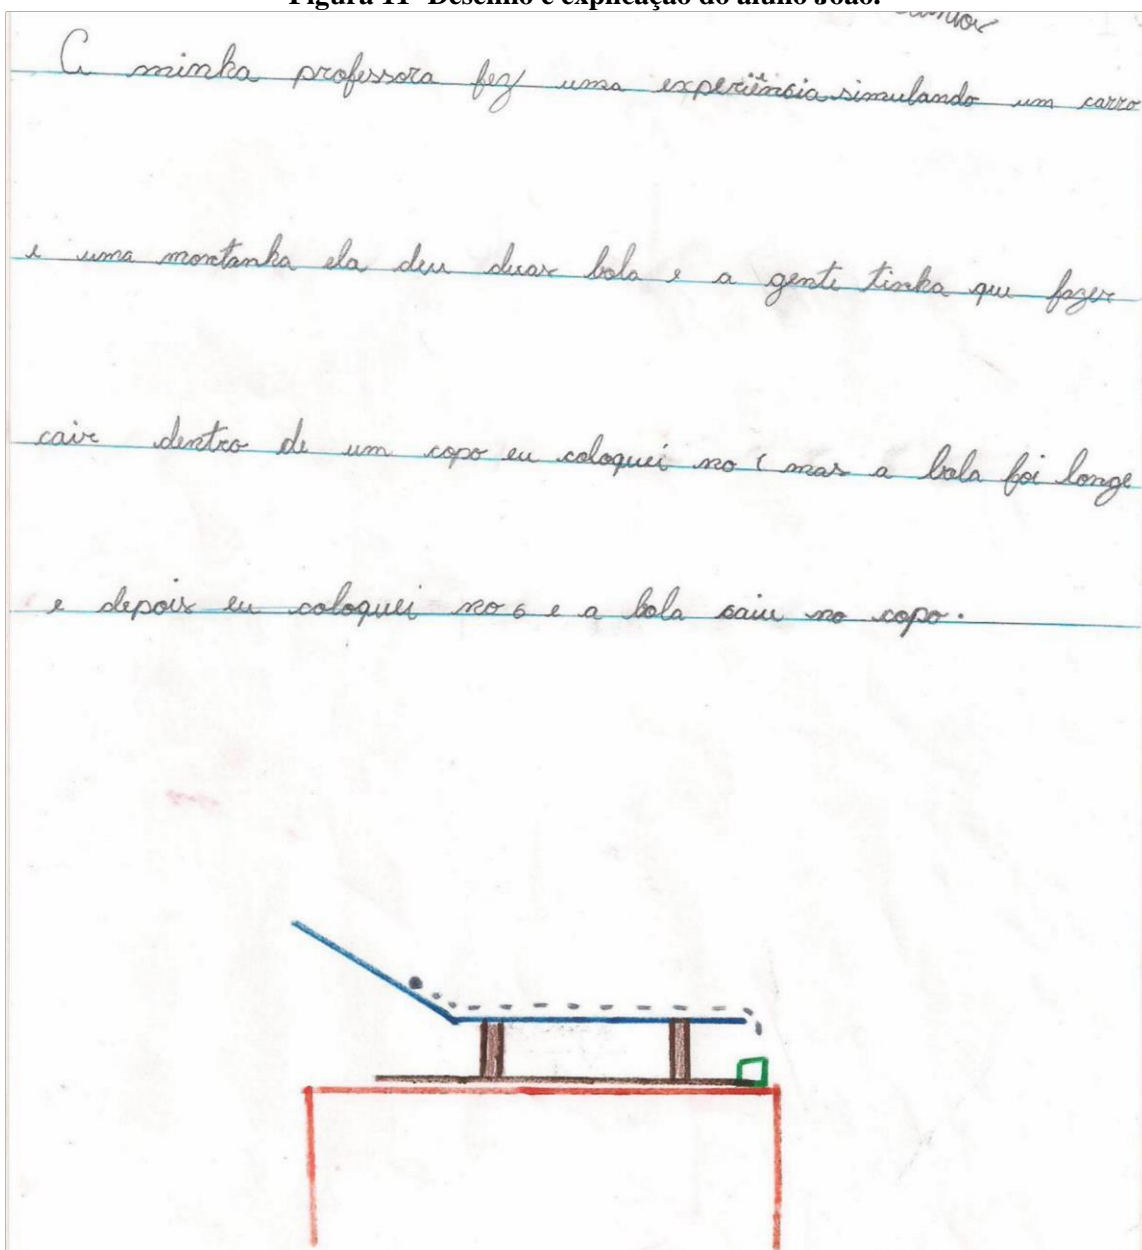 Figura 11- Desenho e explicação do aluno João.
A minha professora fez uma experiência simulando um carro
e uma montanha ela deu duas bola e a gente tinha que fazer
cair dentro de um copo eu coloquei no 1 mas a bola foi longe
e depois eu coloquei no 6 e a bola caiu no copo.